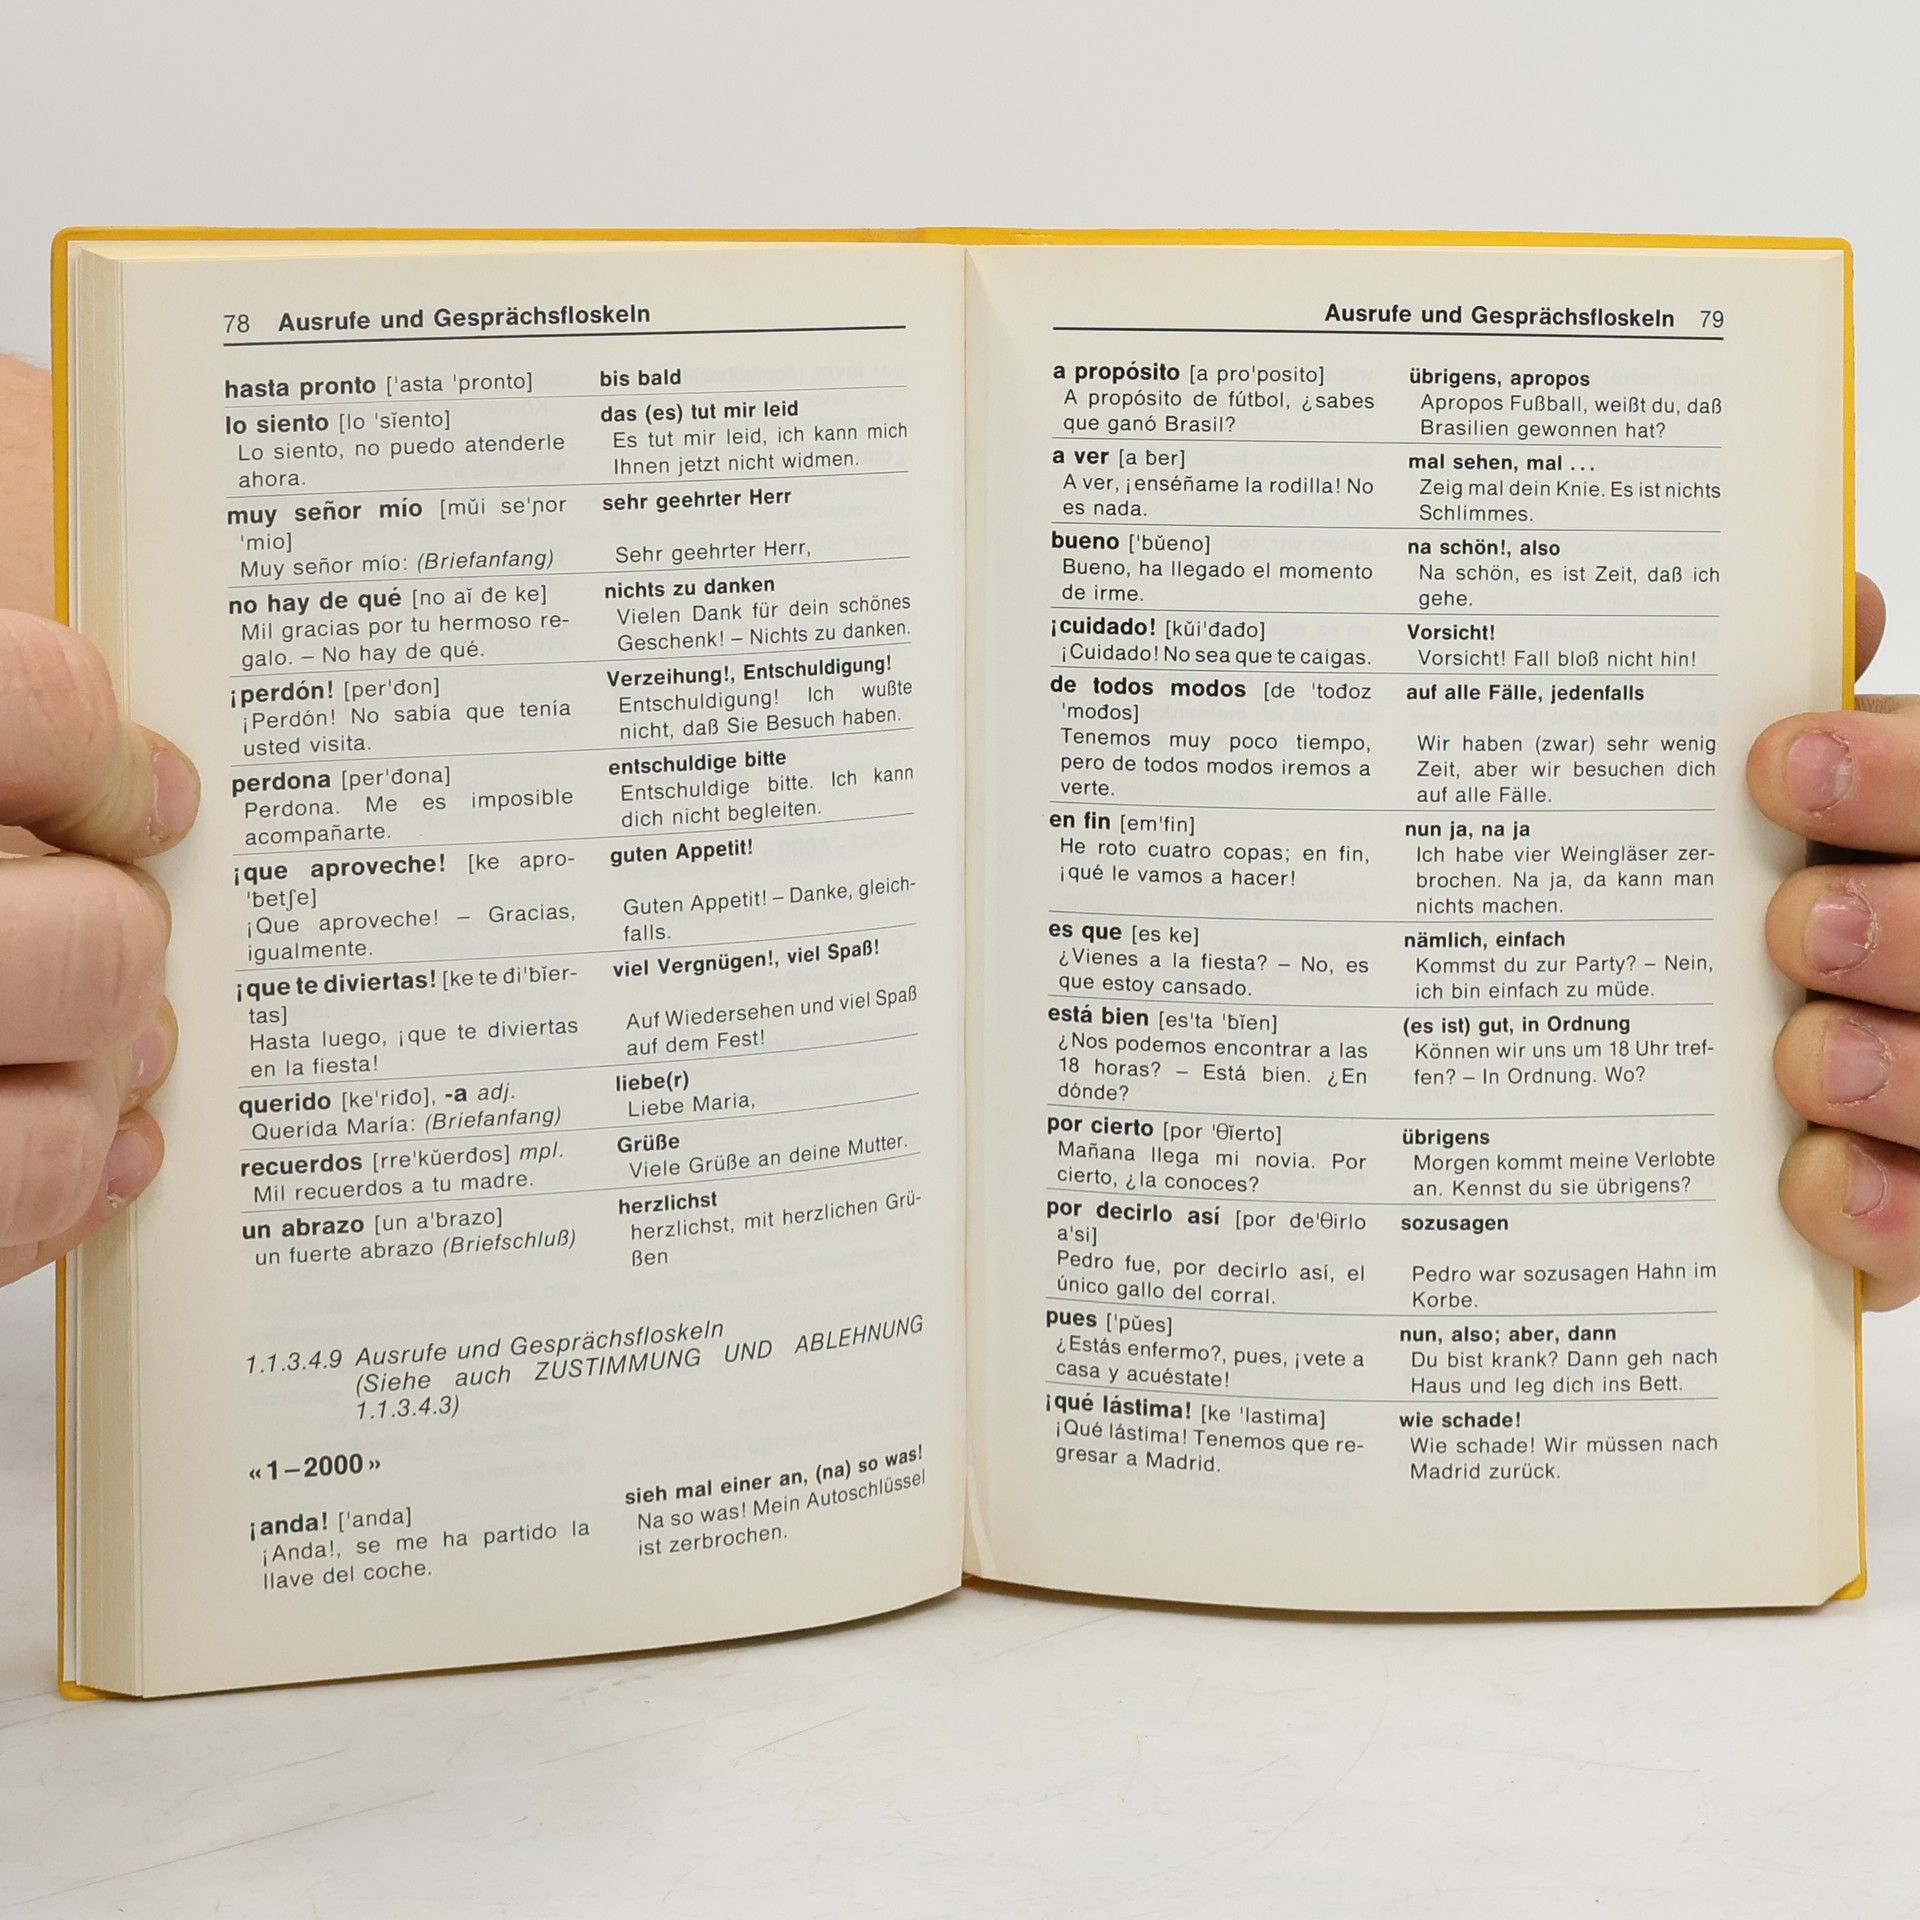 78 Ausrufe und Gesprächsfloskeln
hasta pronto ['asta 'pronto]
bis bald
lo siento [lo 'sĭento]
Lo siento, no puedo atenderle
ahora.
das (es) tut mir leid
Es tut mir leid, ich kann mich
Ihnen jetzt nicht widmen.
muy señor mío [mŭi se'ɲor
'mio]
Muy señor mío: (Briefanfang)
sehr geehrter Herr
Sehr geehrter Herr,
no hay de qué [no aĭ đe ke]
Mil gracias por tu hermoso re-
galo. – No hay de qué.
nichts zu danken
Vielen Dank für dein schönes
Geschenk! – Nichts zu danken.
¡perdón! [per'đon]
¡Perdón! No sabía que tenía
usted visita.
Verzeihung!, Entschuldigung!
Entschuldigung! Ich wußte
nicht, daß Sie Besuch haben.
perdona [per'đona]
Perdona. Me es imposible
acompañarte.
entschuldige bitte
Entschuldige bitte. Ich kann
dich nicht begleiten.
¡que aproveche! [ke apro-
'ƀetʃe]
¡Que aproveche! – Gracias,
igualmente.
guten Appetit!
Guten Appetit! – Danke, gleich-
falls.
¡que te diviertas! [ke te đi'ƀĭer-
tas]
Hasta luego, ¡que te diviertas
en la fiesta!
viel Vergnügen!, viel Spaß!
Auf Wiedersehen und viel Spaß
auf dem Fest!
querido [ke'riđo], -a adj.
Querida María: (Briefanfang)
liebe(r)
Liebe Maria,
recuerdos [rre'kŭerđos] mpl.
Mil recuerdos a tu madre.
Grüße
Viele Grüße an deine Mutter.
un abrazo [un a'brazo]
un fuerte abrazo (Briefschluß)
herzlichst
herzlichst, mit herzlichen Grü-
ßen
1.1.3.4.9 Ausrufe und Gesprächsfloskeln
(Siehe auch ZUSTIMMUNG UND ABLEHNUNG
1.1.3.4.3)
«1–2000»
¡anda! ['anda]
¡Anda!, se me ha partido la
llave del coche.
sieh mal einer an, (na) so was!
Na so was! Mein Autoschlüssel
ist zerbrochen.
Ausrufe und Gesprächsfloskeln 79
a propósito [a pro'posito]
A propósito de fútbol, ¿sabes
que ganó Brasil?
übrigens, apropos
Apropos Fußball, weißt du, daß
Brasilien gewonnen hat?
a ver [a ƀer]
A ver, ¡enséñame la rodilla! No
es nada.
mal sehen, mal ...
Zeig mal dein Knie. Es ist nichts
Schlimmes.
bueno ['bŭeno]
Bueno, ha llegado el momento
de irme.
na schön!, also
Na schön, es ist Zeit, daß ich
gehe.
¡cuidado! [kŭi'đađo]
¡Cuidado! No sea que te caigas.
Vorsicht!
Vorsicht! Fall bloß nicht hin!
de todos modos [de 'tođoz
'mođos]
Tenemos muy poco tiempo,
pero de todos modos iremos a
verte.
auf alle Fälle, jedenfalls
Wir haben (zwar) sehr wenig
Zeit, aber wir besuchen dich
auf alle Fälle.
en fin [em'fin]
He roto cuatro copas; en fin,
¡qué le vamos a hacer!
nun ja, na ja
Ich habe vier Weingläser zer-
brochen. Na ja, da kann man
nichts machen.
es que [es ke]
¿Vienes a la fiesta? – No, es
que estoy cansado.
nämlich, einfach
Kommst du zur Party? – Nein,
ich bin einfach zu müde.
está bien [es'ta 'ƀĭen]
¿Nos podemos encontrar a las
18 horas? – Está bien. ¿En
dónde?
(es ist) gut, in Ordnung
Können wir uns um 18 Uhr tref-
fen? – In Ordnung. Wo?
por cierto [por 'θĭerto]
Mañana llega mi novia. Por
cierto, ¿la conoces?
übrigens
Morgen kommt meine Verlobte
an. Kennst du sie übrigens?
por decirlo así [por đe'θirlo
a'si]
Pedro fue, por decirlo así, el
único gallo del corral.
sozusagen
Pedro war sozusagen Hahn im
Korbe.
pues ['pŭes]
¿Estás enfermo?, pues, ¡vete a
casa y acuéstate!
nun, also; aber, dann
Du bist krank? Dann geh nach
Haus und leg dich ins Bett.
¡qué lástima! [ke 'lastima]
¡Qué lástima! Tenemos que re-
gresar a Madrid.
wie schade!
Wie schade! Wir müssen nach
Madrid zurück.